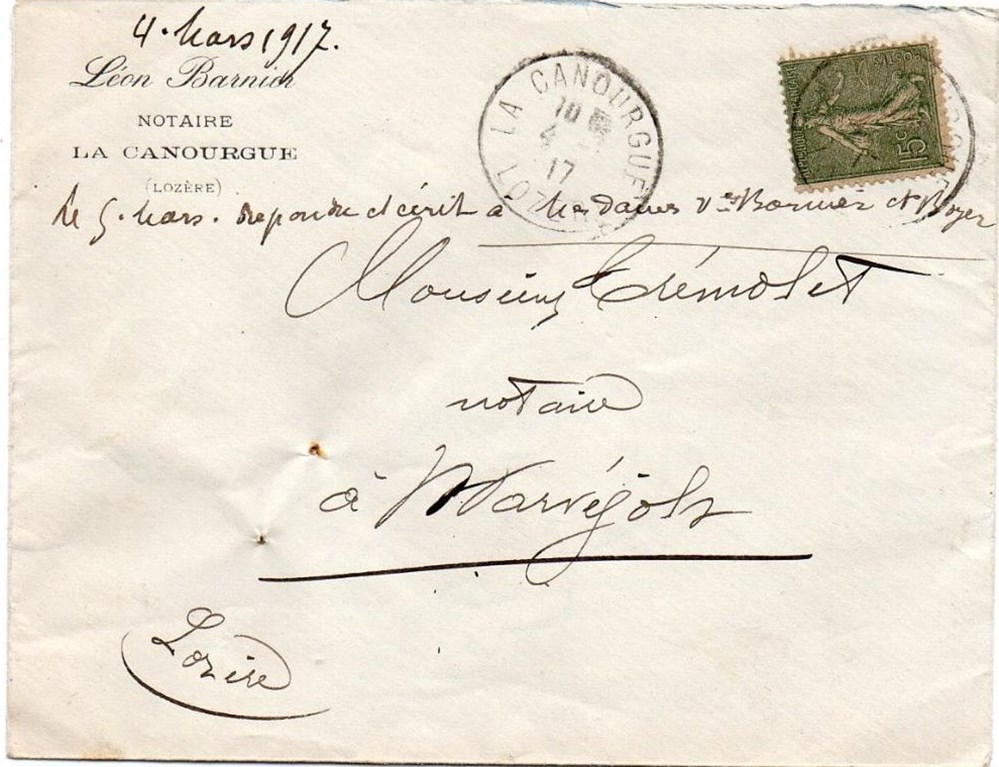 4 Mars 1917.
Léon Barnier
NOTAIRE
LA CANOURGUE
(LOZÈRE)
LA CANOURGUE
10
4
17
LOZÈRE
15c
le 5 Mars. répondu et écrit à Mesdames Vve Barnier et Boyer
Monsieur Trémolet
notaire
à Marvéjols
Lozère